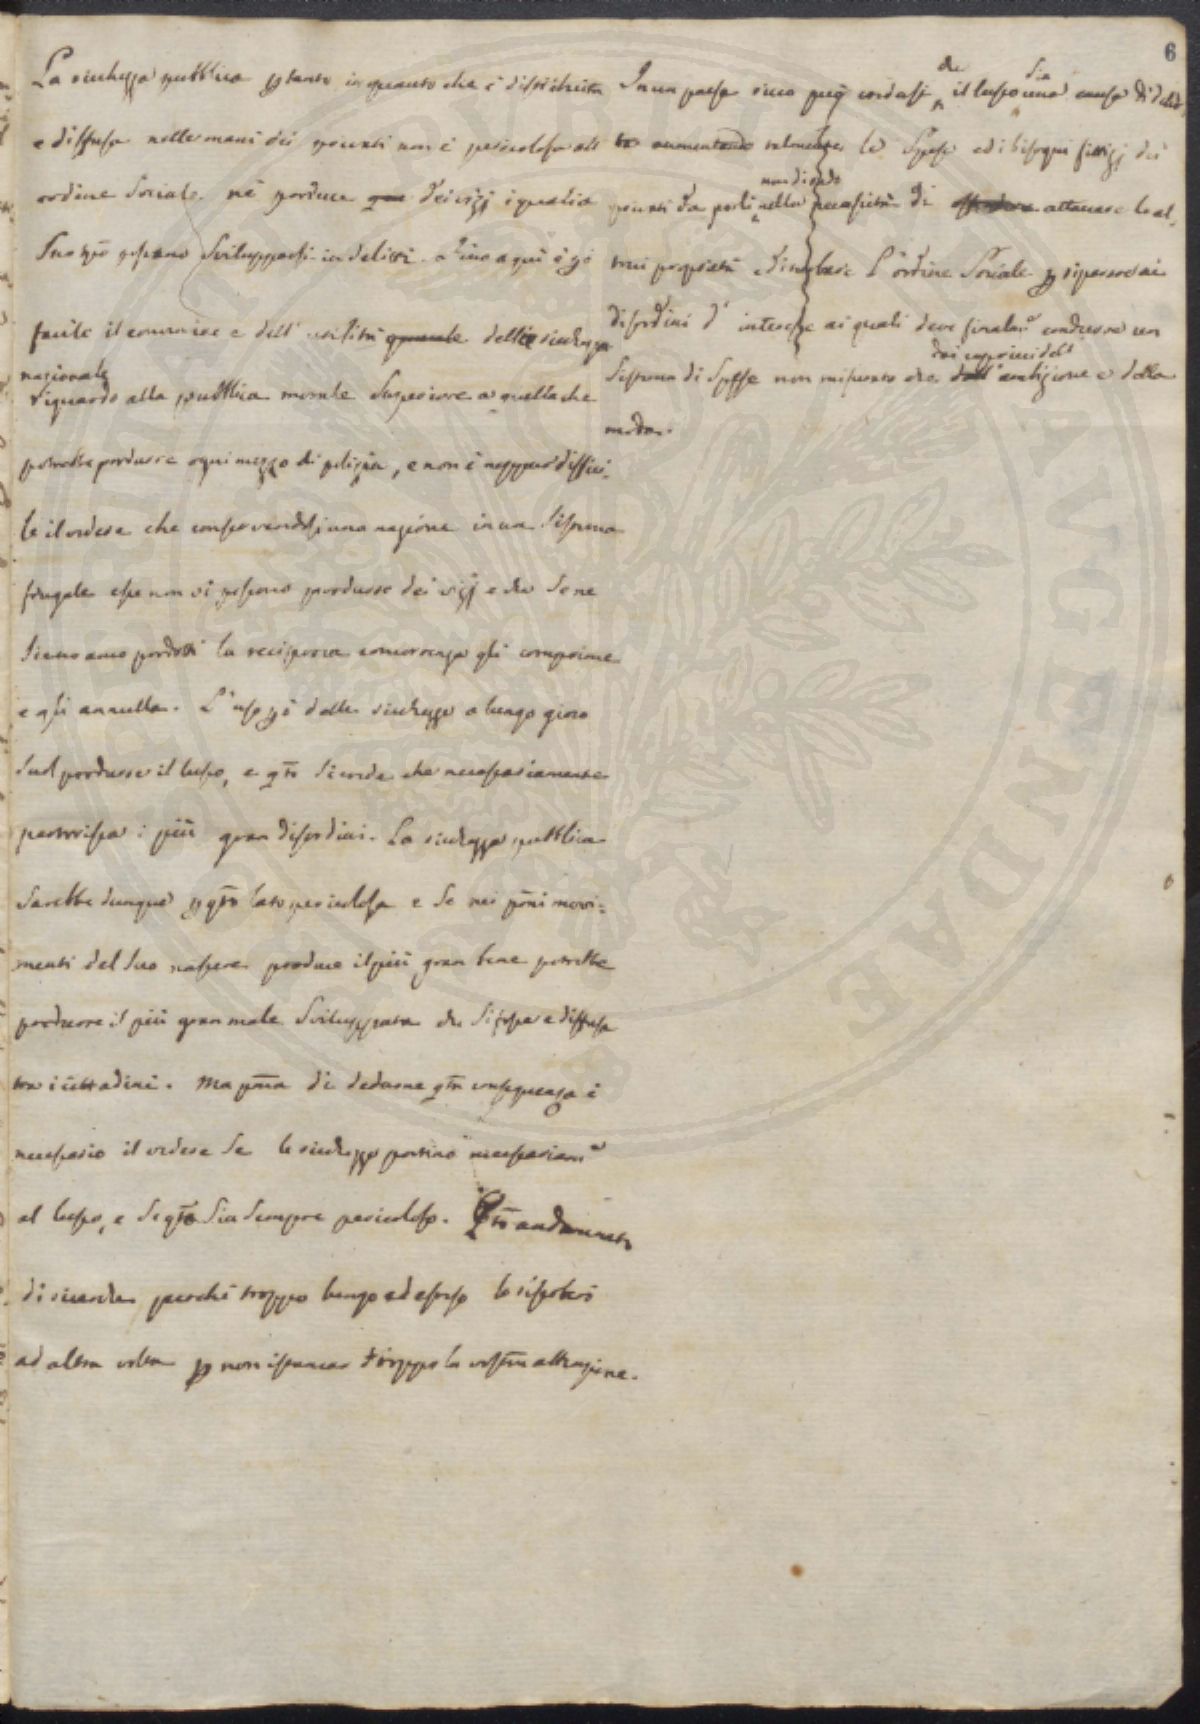 6
La richezza pubblica p tanto in quanto che è distribuita
e diffusa nelle mani dei privati non è pericolosa all
ordine Sociale nè produce dei vizj i quali a
Suo tpo possano Svilupparsi in delitti. Fino a qui è
facile il convenire e dell' utilità della richezza
nazionale
riguardo alla pubblica morale Superiore a quella che
potrebbe produrre ogni mezzo di polizia, e non è neppure diffici-
le il vedere che conservandosi una nazione in un Sistema
frugale esse non vi possono produrre dei vizj e che Se ne
Sieno anco prodotti la reciproca concorrenza gli comprime
e gli annulla. L'uso poi delle richezze a lungo gioco
Suol produrre il lusso, e qto Si crede che necessariamente
partorisca i più gran disordini. La richezza pubblica
Sarebbe dunque p qto lato pericolosa e Se nei pmi movi-
menti del Suo nascere produce il più gran bene potrebbe
produrre il più gran male Sviluppata che Si fosse e diffusa
tra i cittadini. Ma pma di dedurne qta conseguenza è
necessario il vedere Se le richezze portino necessariam
al lusso, e Se qto Sia Sempre pericoloso. Qto andamento
di ricerche perchè troppo lungo ed esteso lo riserberò
ad altra volta p non istancar troppo la vostra attenzione.
che Sia
In un paese ricco può credersi il lusso una causa di delit-
ti aumentando talmente le Spese ed i bisogni fittizj dei
non di rado
privati da porli nella necessità di attaccare le al-
trui proprietà e turbare l'ordine Sociale p riparare ai
disordini d' interesse ai quali deve finalm condurre un
dai capricci dell
Sistema di Spese non misurato che dall' ambizione e dalla
moda.